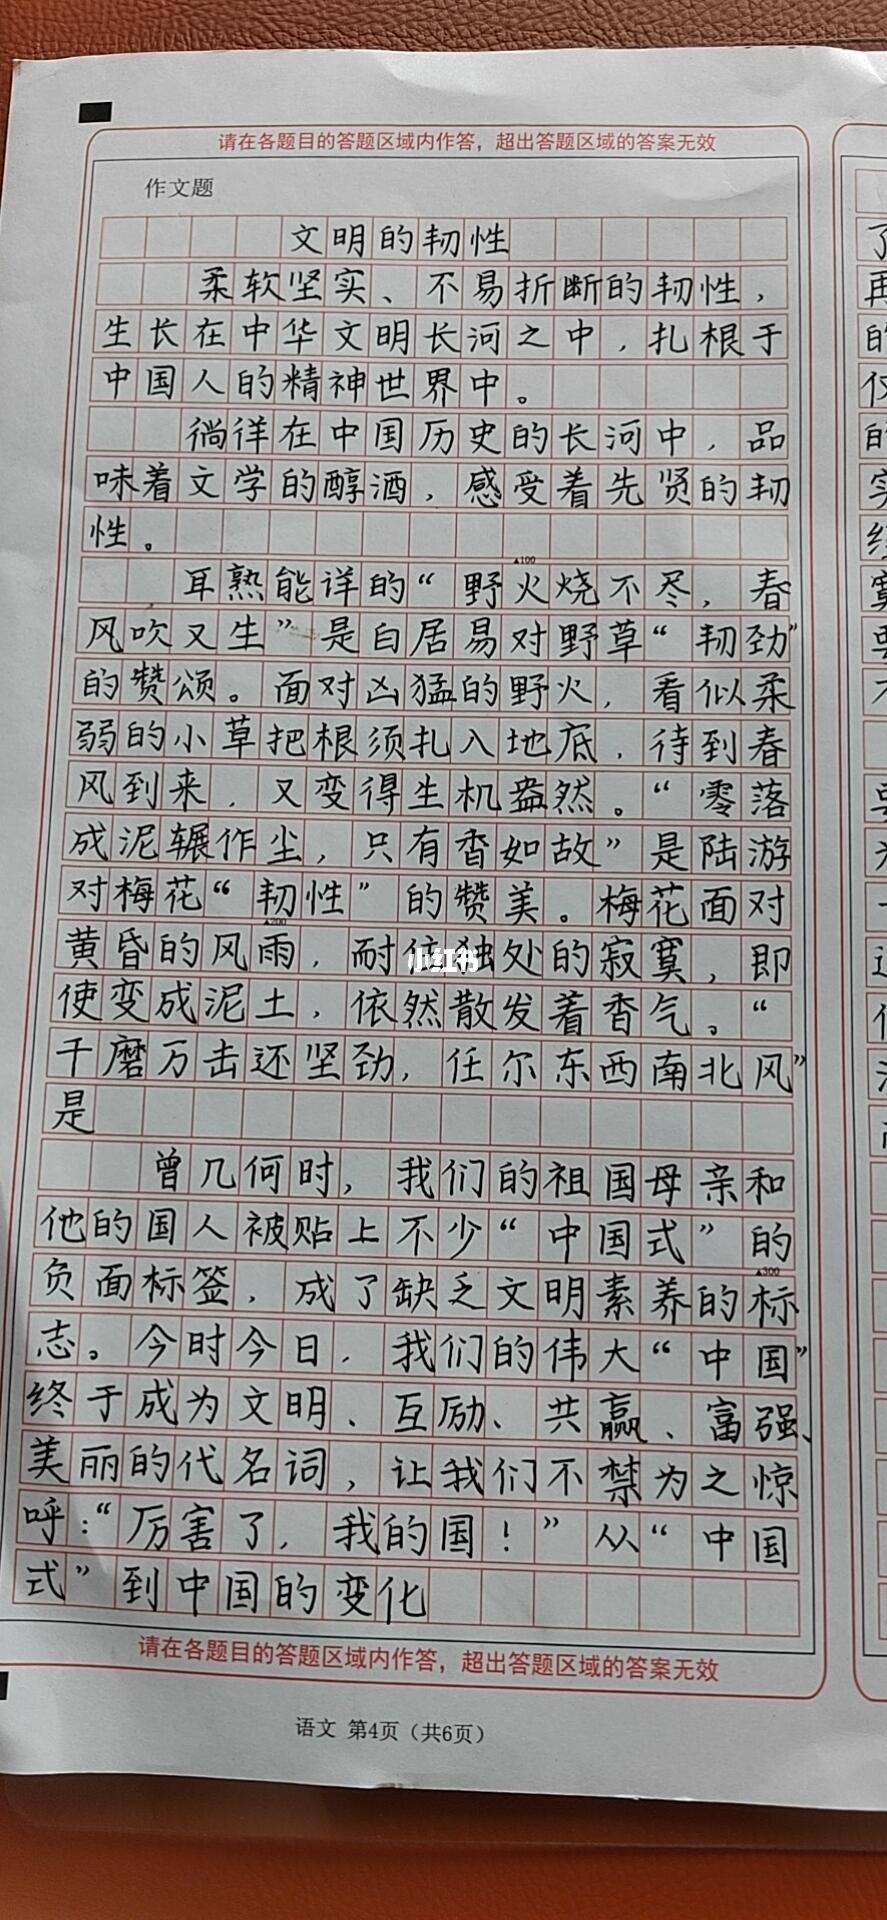 请在各题目的答题区域内作答，超出答题区域的答案无效
作文题
文明的韧性
柔软坚实、不易折断的韧性，
生长在中华文明长河之中，扎根于
中国人的精神世界中。
徜徉在中国历史的长河中，品
味着文学的醇酒，感受着先贤的韧
性。
▲100
耳熟能详的“野火烧不尽，春
风吹又生”是白居易对野草“韧劲”
的赞颂。面对凶猛的野火，看似柔
弱的小草把根须扎入地底，待到春
风到来，又变得生机盎然。“零落
成泥辗作尘，只有香如故”是陆游
对梅花“韧性”的赞美。梅花面对
▲200
黄昏的风雨，耐住独处的寂寞，即
小红书
使变成泥土，依然散发着香气。“
千磨万击还坚劲，任尔东西南北风”
是
曾几何时，我们的祖国母亲和
他的国人被贴上不少“中国式”的
▲300
负面标签，成了缺乏文明素养的标
志。今时今日，我们的伟大“中国”
终于成为文明、互励、共赢、富强、
美丽的代名词，让我们不禁为之惊
呼：“厉害了，我的国！”从“中国
式”到中国的变化
请在各题目的答题区域内作答，超出答题区域的答案无效
语文 第4页（共6页）